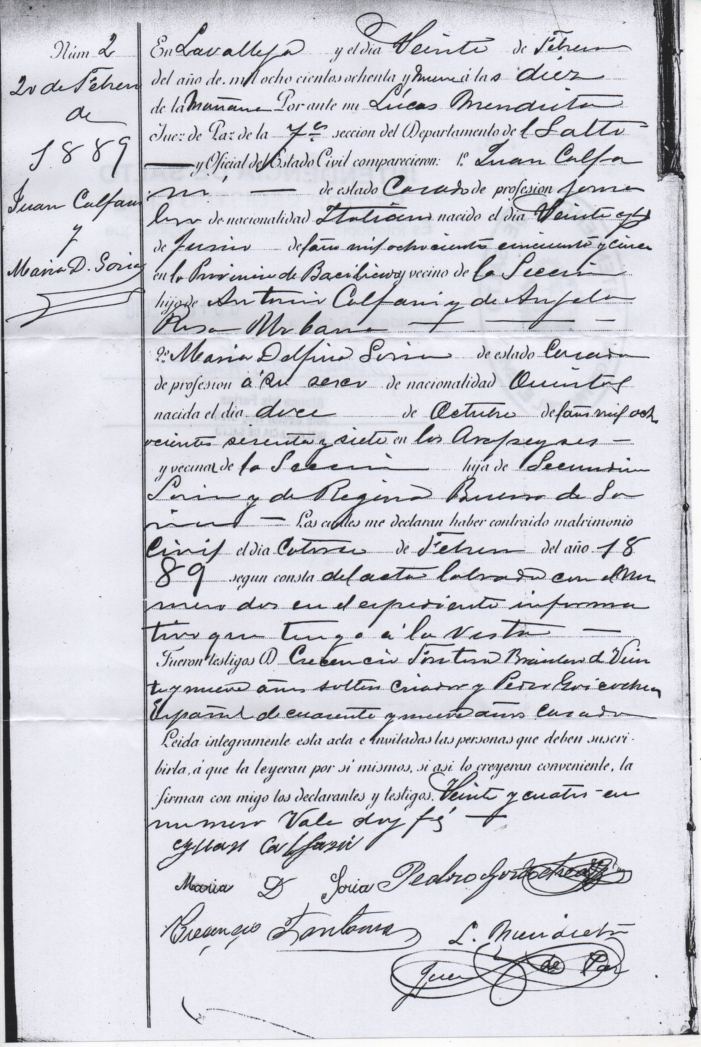 Núm 2
20 de Febrero
de
1889
Juan Calfani
y
Maria D. Soria
En Lavalleja y el dia Veinte de Febrero
del año de mil ocho cientos ochenta y nueve á las diez
de la Mañana Por ante mi Lúcas Mendieta
Juez de Paz de la 7a seccion del Departamento del Salto
y Oficial del Estado Civil comparecieron: 1º Juan Calfa
ni de estado Casado de profesion jorna
lero de nacionalidad Italiano nacido el dia Veinte
de Junio del año mil ocho ciento cincuenta y cinco
en la Provincia de y vecino de la Seccion
hijo de Antonio Calfani y de Angela
Rosa Urbana
2º Maria Delfina Soria de estado Casada
de profesion á su sexo de nacionalidad Oriental
nacida el dia doce de Octubre del año mil och
ocientos sesenta y siete en los Arapeyses
y vecina de la Seccion hija de Secundino
Soria y de Regina de So
ria Los cuales me declaran haber contraido matrimonio
Civil el dia Catorce de Febrero del año 18
89 segun consta del acta labrada con el nu
mero dos en el espediente informa
tivo que tengo á la vista
Fueron testigos D. Cresencio Fontoura Brasilero de Vein
te y nueve años soltero criador y Pedro Goicochea
Español de cuarenta y nueve años casado
Leida integramente esta acta e invitadas las personas que deben suscri-
birla, á que la leyeran por si mismos, si asi lo creyeran conveniente, la
firman con migo los declarantes y testigos. Veinte y cuatro en
numero Vale doy fé
Juan Calfani
Maria D Soria Pedro Goicochea
Cresencio Fontoura L. Mendieta
Juez de Paz